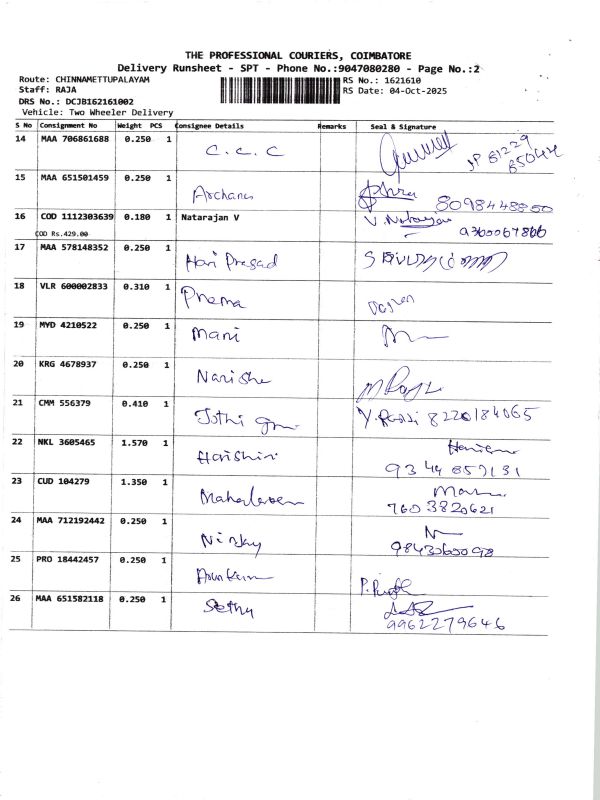 THE PROFESSIONAL COURIERS, COIMBATORE
Delivery Runsheet - SPT - Phone No.:9047080280 - Page No.:2
Route: CHINNAMETTUPALAYAM RS No.: 1621610
Staff: RAJA RS Date: 04-Oct-2025
DRS No.: DCJB162161002
Vehicle: Two Wheeler Delivery
S No Consignment No Weight PCS Consignee Details Remarks Seal & Signature
14 MAA 706861688 0.250 1 C. C. C
15 MAA 651501459 0.250 1 Archana 8098448850
16 COD 1112303639 0.180 1 Natarajan V V. Natarajan
COD Rs.429.00
17 MAA 578148352 0.250 1 Hari Prasad
18 VLR 600002833 0.310 1 Prema
19 MYD 4210522 0.250 1 Mani
20 KRG 4678937 0.250 1
21 CMM 556379 0.410 1 Jothi 8220184065
22 NKL 3605465 1.570 1
23 CUD 104279 1.350 1
7603820621
24 MAA 712192442 0.250 1
25 PRO 18442457 0.250 1
26 MAA 651582118 0.250 1 Sethu
9962279646